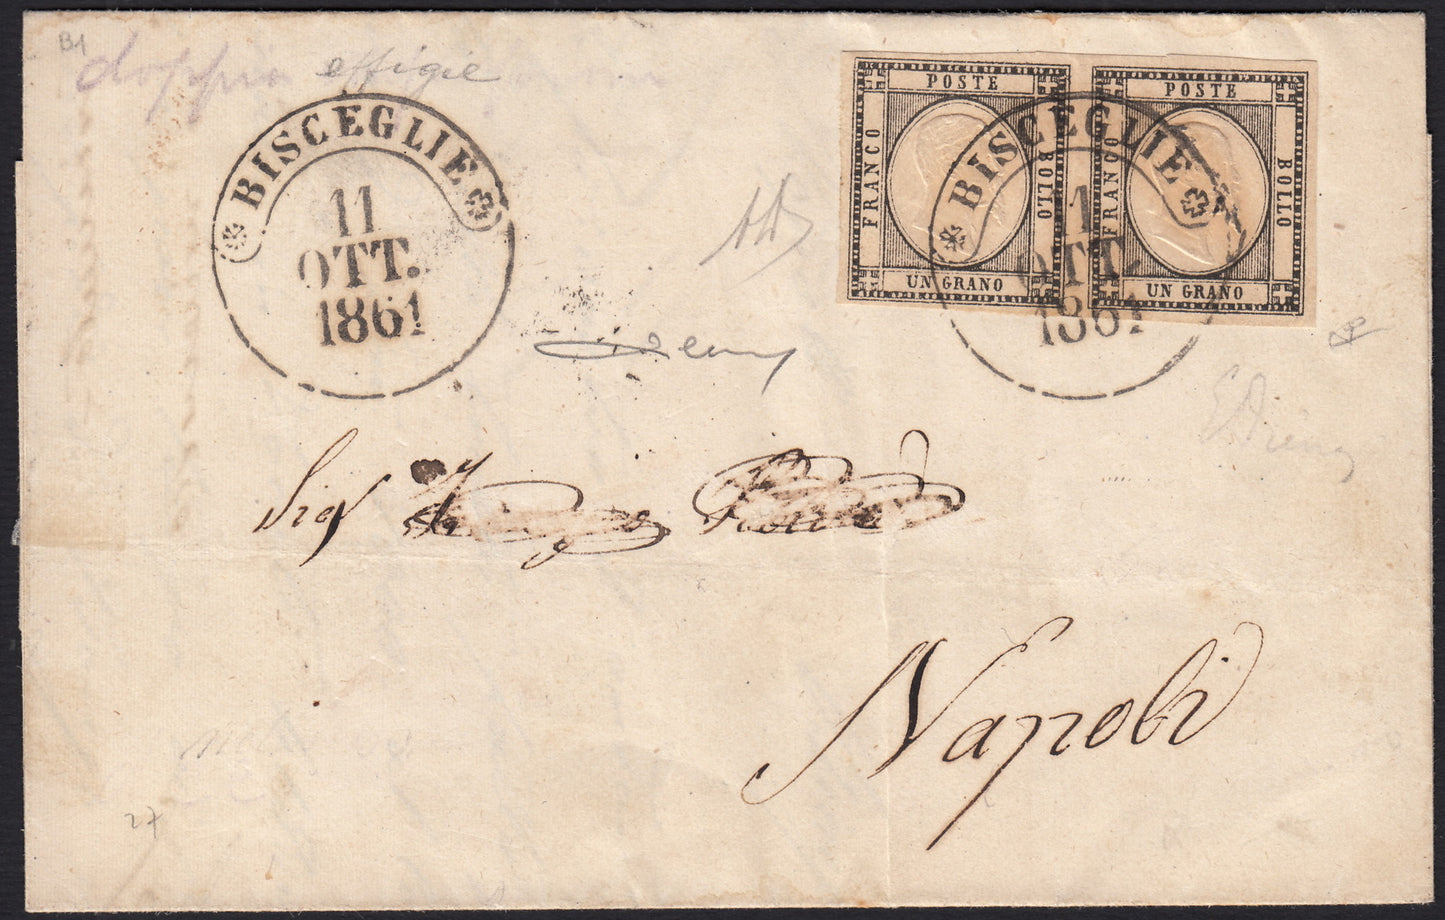 B1
doppia effigie
BISCEGLIE
11
OTT.
1861
POSTE
FRANCO
BOLLO
UN GRANO
POSTE
FRANCO
BOLLO
UN GRANO
BISCEGLIE
11
OTT.
1861
Sigr
Napoli
27